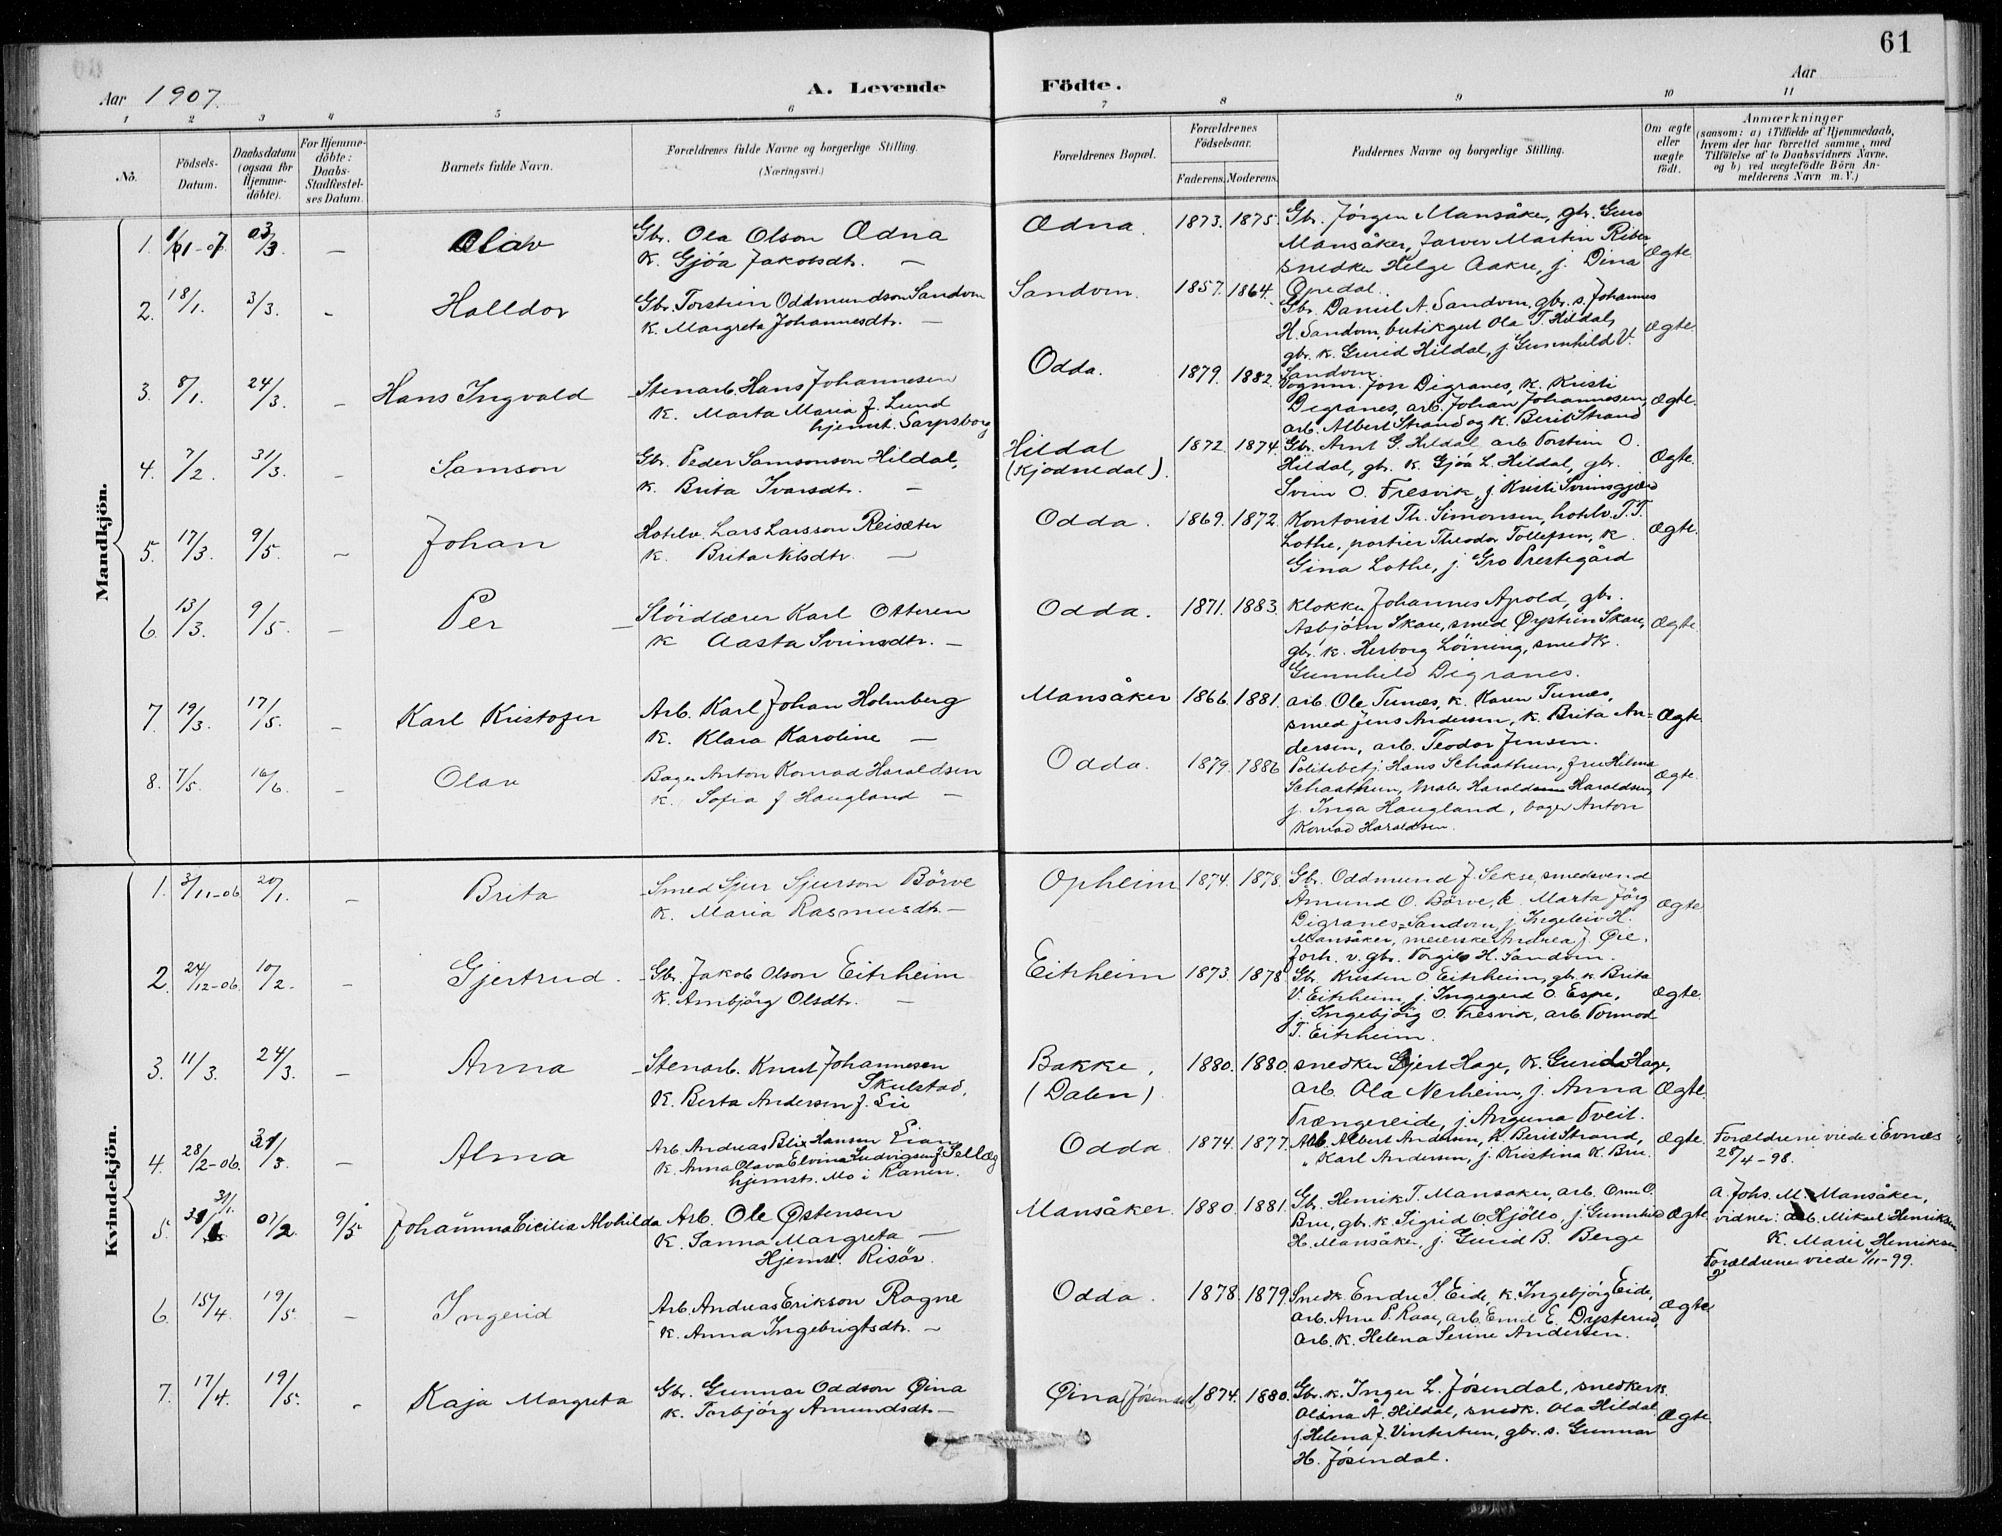 61
Aar 1907.
A. Levende Födte.
Aar
1 2 3 4 5 6 7 8 9 10 11
No.
Födsels-Datum.
Daabsdatum (ogsaa for Hjemme-döbte).
For Hjemme-döbte: Daabs-Stadfæstel-ses Datum.
Barnets fulde Navn.
Forældrenes fulde Navne og borgerlige Stilling. (Næringsvei.)
Forældrenes Bopæl.
Forældrenes Födselsaar.
Faderens. Moderens.
Faddernes Navne og borgerlige Stilling.
Om ægte eller uægte födt.
Anmærkninger
(saasom: a) i Tilfælde af Hjemmedaab,
hvem der har forrettet samme, med
Tilföielse af to Daabsvidners Navne,
og b) ved uægtefödte Börn An-
melderens Navn m. V.)
Mandkjön.
1. 1/1-07 3/3 – Olav
Gbr. Ola Olson Ædna
K. Gjøa Jakobsdtr. —
Ædna. 1873. 1875.
Gbr. Jørgen Mansåker, gbr. Guro
Mansåker, farver Martin Riber
snedker Helge Aakre, j. Dina
Opedal.
Ægte.
2. 18/1. 3/3. – Halldor
Gbr. Torstein Oddmundson Sandvin
K. Margreta Johannesdtr. —
Sandvin. 1857. 1864.
Gbr. Daniel A. Sandvin, gbr. s. Johannes
H. Sandvin, butikgut Ola T. Hildal,
gbr. k. Gurid Hildal, j. Gunnhild V.
Sandvin.
Ægte.
3. 8/1. 24/3. – Hans Ingvald
Stenarb. Hans Johannesen
K. Marta Maria f. Lund
hjemst. Sarpsborg
Odda. 1879. 1882.
Vognm. Jon Digranes, K. Kristi
Digranes, arb. Johan Johannesen,
arb. Albert Strand og K. Berit Strand
Ægte.
4. 7/2. 31/3. – Samson
Gbr. Peder Samsonson Hildal,
K. Brita Ivarsdtr. —
Hildal (Kjødnedal). 1872 1874.
Gbr. Arnt G. Hildal, arb. Torstein O.
Hildal, gbr. K. Gjøa L. Hildal, gbr.
Svein O. Fresvik, j. Kristi Sveinsgjerd
Ægte.
5. 17/3. 9/5. – Johan
Hotelv. Lars Larsson Reisæter
K. Brita Nilsdtr. —
Odda. 1869. 1872.
Kontorist Th. Simonsen, hotelv. T. T.
Lothe, portier Theodor Tollefsen, K.
Gina Lothe, j. Gro Prestegård
Ægte.
6. 13/3. 9/5. – Per
Sløidlærer Karl Otteren
K Aasta Sveinsdtr. —
Odda. 1871. 1883.
Klokker Johannes Apold, gbr.
Asbjørn Skare, smed Øystein Skare,
gbr. K. Herborg Løining, smedk.
Gunnhild Digranes.
Ægte
7. 19/3. 17/5. – Karl Kristofer
Arb. Karl Johan Holmberg
K. Klara Karoline —
Mansåker 1866. 1881.
arb. Ole Tunæs, K. Karen Tunæs,
smed Jens Andersen, K. Brita An=
dersen, arb. Teodor Jensen.
Ægte
8. 7/5. 16/6. – Olav
Bager Anton Konrad Haraldsen
K. Sofia f Haugland —
Odda. 1879. 1886
Politibetj. Hans Schaathun, fru Hilma
Schaathun, Maler Harald Haraldsen,
j. Inga Haugland, bager Anton
Konrad Haraldsen.
Ægte.
Kvindekjön.
1. 3/11-06 20/1. – Brita
Smed Sjur Sjurson Börve
K. Maria Rasmusdtr. —
Opheim 1874. 1878.
Gbr. Oddmund J. Sekse, smedsvend
Amund O. Börve, k. Marta Jörg
Digranes-Sandvin, j. Ingeleiv H.
Mansåker, meierske Andrea J. Øie.
forh. v. gbr. Torgils H. Sandvin.
Ægte
2. 24/12-06. 10/2. – Gjertrud.
Gbr. Jakob Olson Eitrheim
K. Armbjörg Olsdtr. —
Eitrheim 1873. 1878
Gbr. Kristen O. Eitrheim, gbr. k. Brita
V. Eitrheim, j. Ingegerd O. Espe,
j. Ingebjörg O. Fresvik, arb. Tormod
T. Eitrheim.
Ægte.
3. 11/3. 24/3. – Anna
Stenarb. Knut Johannesen
Skulstad,
K. Berta Andersen f. Lie
Bakke, (Dalen). 1880. 1880.
snedker Gjert Hage, K. Gurida Hage,
arb. Ola Nerheim, j. Anna
Trængereide, j. Anguna Tveit.
Ægte.
4. 28/2-06. 31/3. – Alma
Arb. Andreas Blix Hansen Lian
K. Anna Olava Elvina Ludvigsen f. Selleg
hjemst. Mo i Ranen.
Odda. 1874. 1877.
Arb. Albert Andersen, K. Berit Strand,
" Karl Andersen, j. Kristina K. Bru.
Ægte.
Forældrene viede i Evnæs
28/4-98.
5. 31/1. 07/2. 9/5 Johanna Cicilia Alvhilda
Arb. Ole Østensen
K. Sanna Margreta —
Hjemst. Risör.
Mansåker. 1880. 1881.
Gbr. Henrik T. Mansåker, arb. Orm O.
Bru, gbr. k. Sigrid O. Hjöllo, j. Gunnhild
H. Mansåker, j. Gurid B. Berge
Ægte
a. Johs. M. Mansåker,
vidner: arb. Mikael Henriksen
K. Marie Henriksen
Forældrene viede 4/11-99.
6. 15/4. 19/5. – Ingerid
Arb. Andreas Erikson Ragne
K. Anna Ingebrigtsdtr. —
Odda. 1878. 1879.
Snedk. Endre S. Eide, K. Ingebjörg Eide,
arb. Arne P. Raae, arb. Emil E. Dysterud,
arb. K. Helena Serine Andersen.
Ægte
7. 17/4. 19/5. – Kaja Margreta
Gbr. Gunnar Oddson Øina
K. Torbjörg Amundsdtr. —
Øina (Jösendal) 1874. 1880.
Gbr. k. Inger L. Jösendal, snedker k.
Olina A. Hildal, snedk. Ola Hildal
j. Helena J. Vintertun, gbr. s. Gunnar
H. Jösendal.
Ægte.